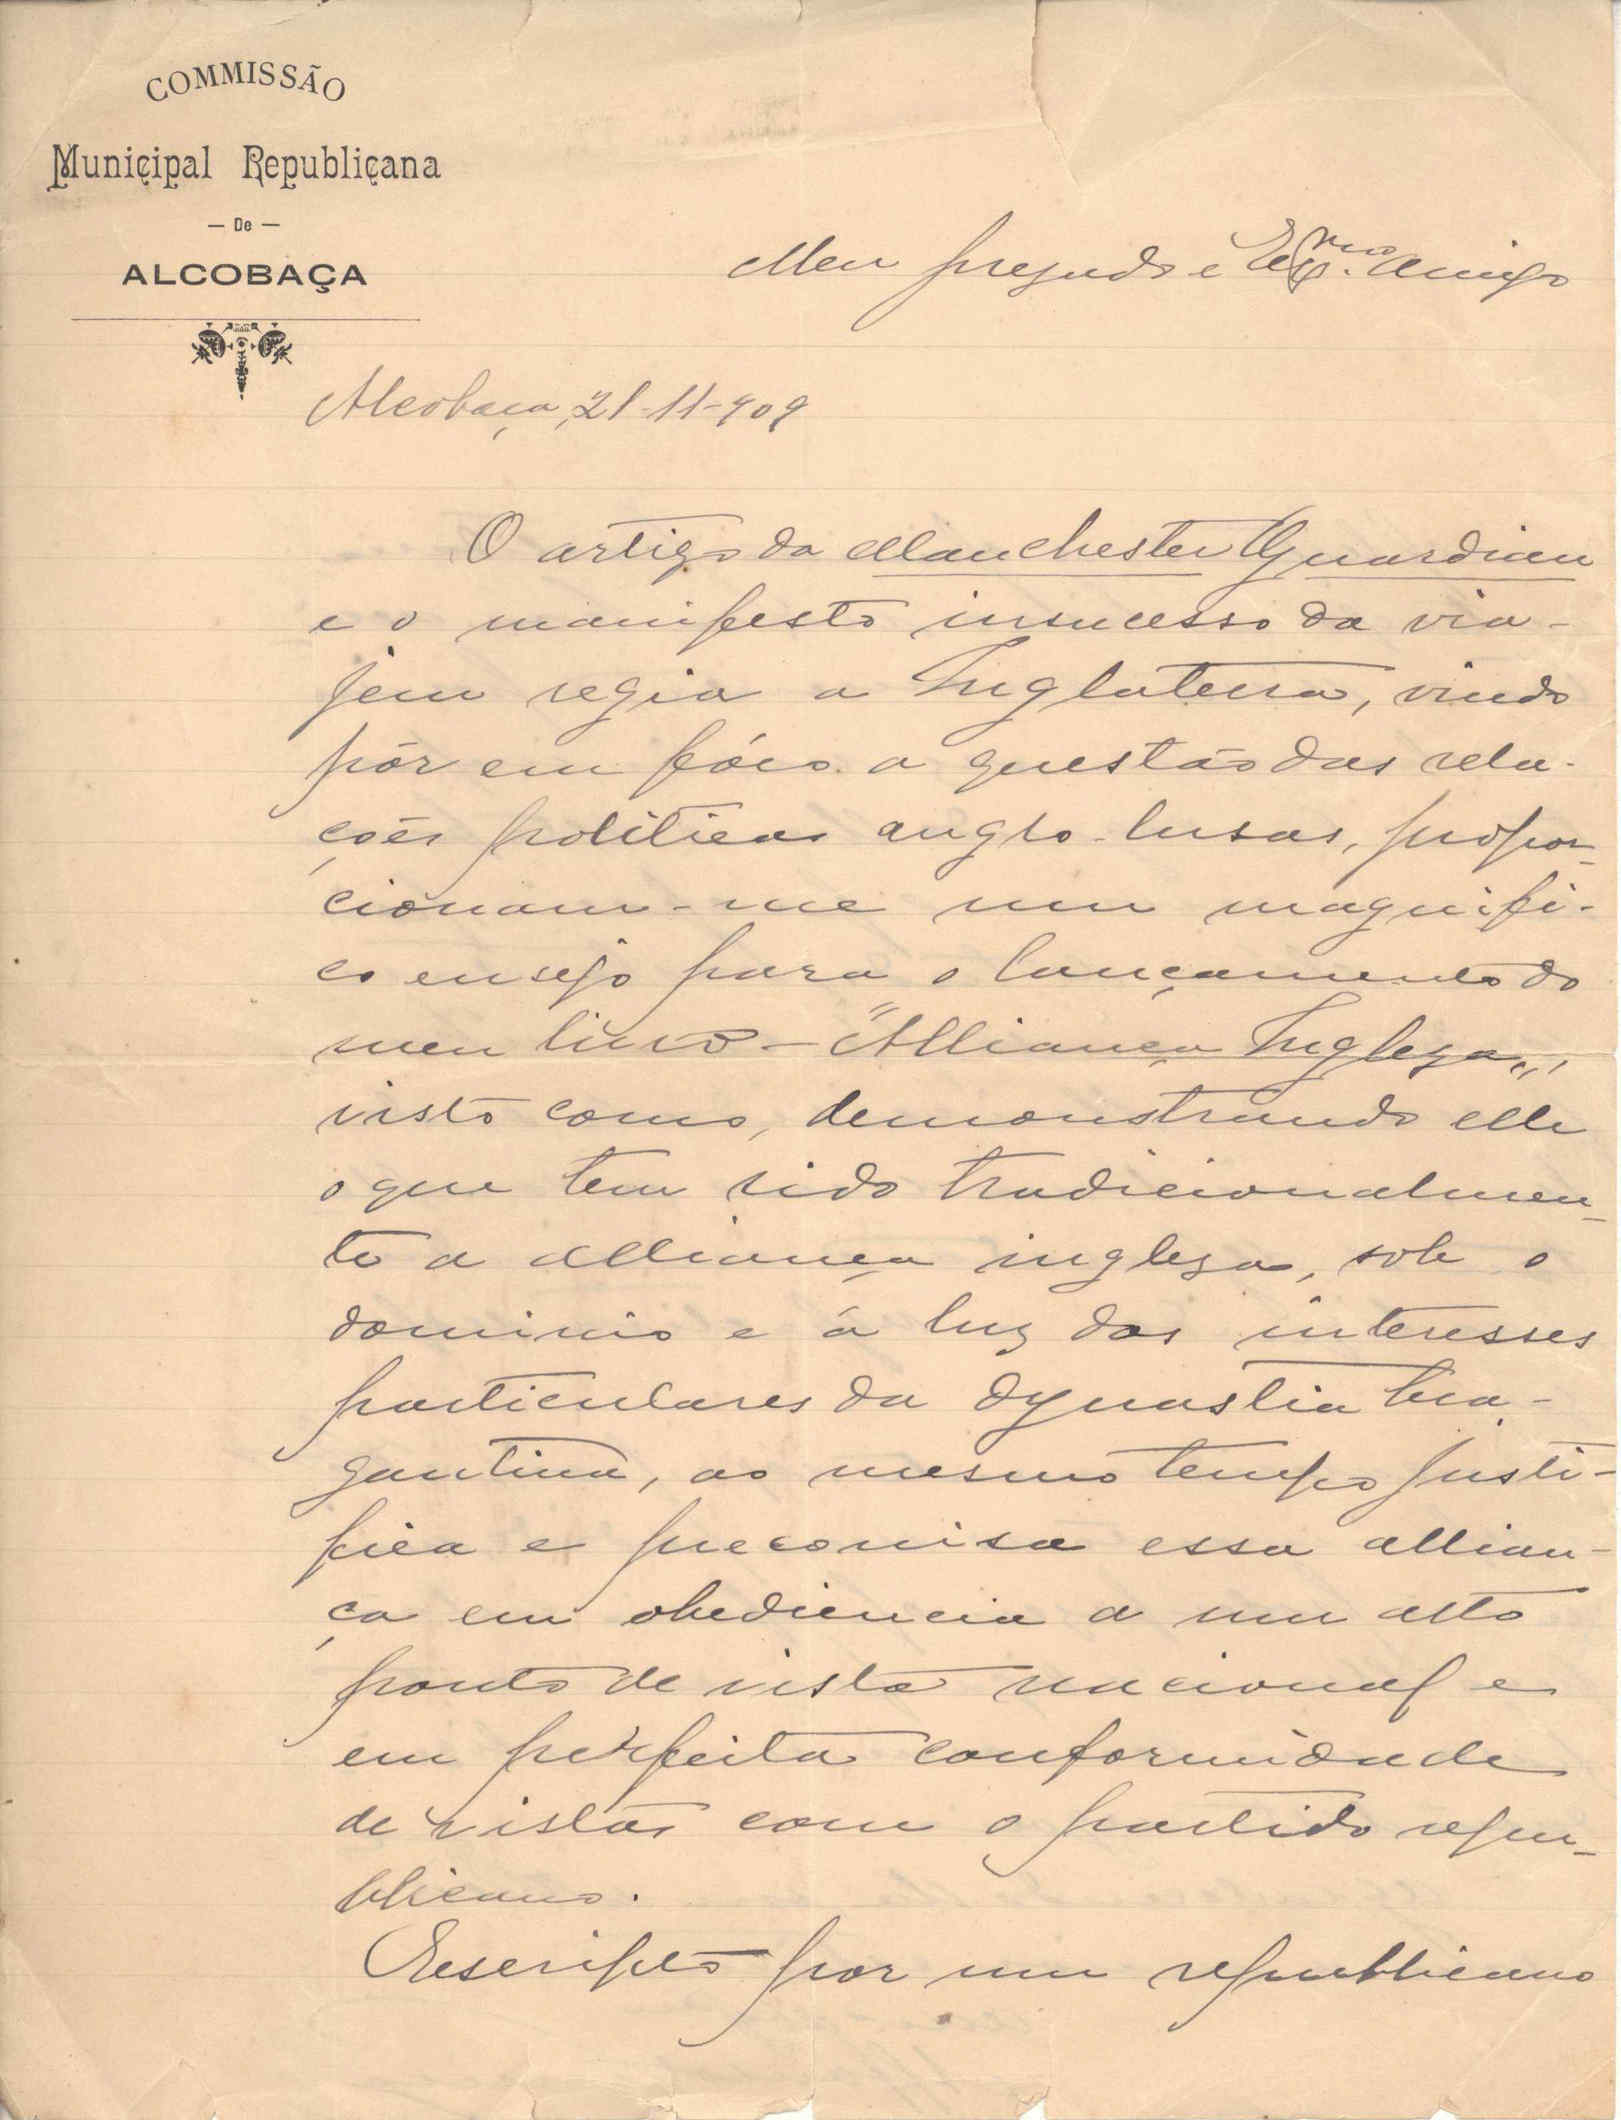 COMMISSÃO
Municipal Republicana
— De —
ALCOBAÇA
Meu presado e Exmo. Amigo
Alcobaça, 21-11-909
O artigo da Manchester Guardian
e o manifesto insucesso da via-
jem regia a Inglaterra, vindo
pôr em fóco a questão das rela-
ções politicas anglo-lusas, propor-
cionam-me um magnifi-
co ensejo para o lançamento do
meu livro - "Alliança Ingleza",
visto como, demonstrando elle
o que tem sido tradicionalmen-
te a alliança ingleza, sob o
dominio e á luz dos interesses
particulares da dynastia bra-
gantina, ao mesmo tempo justi-
fica e preconisa essa allian-
ça em obediencia a um alto
ponto de vista nacional e
em perfeita conformidade
de vistas com o partido repu-
blicano.
Escripto por um republicano